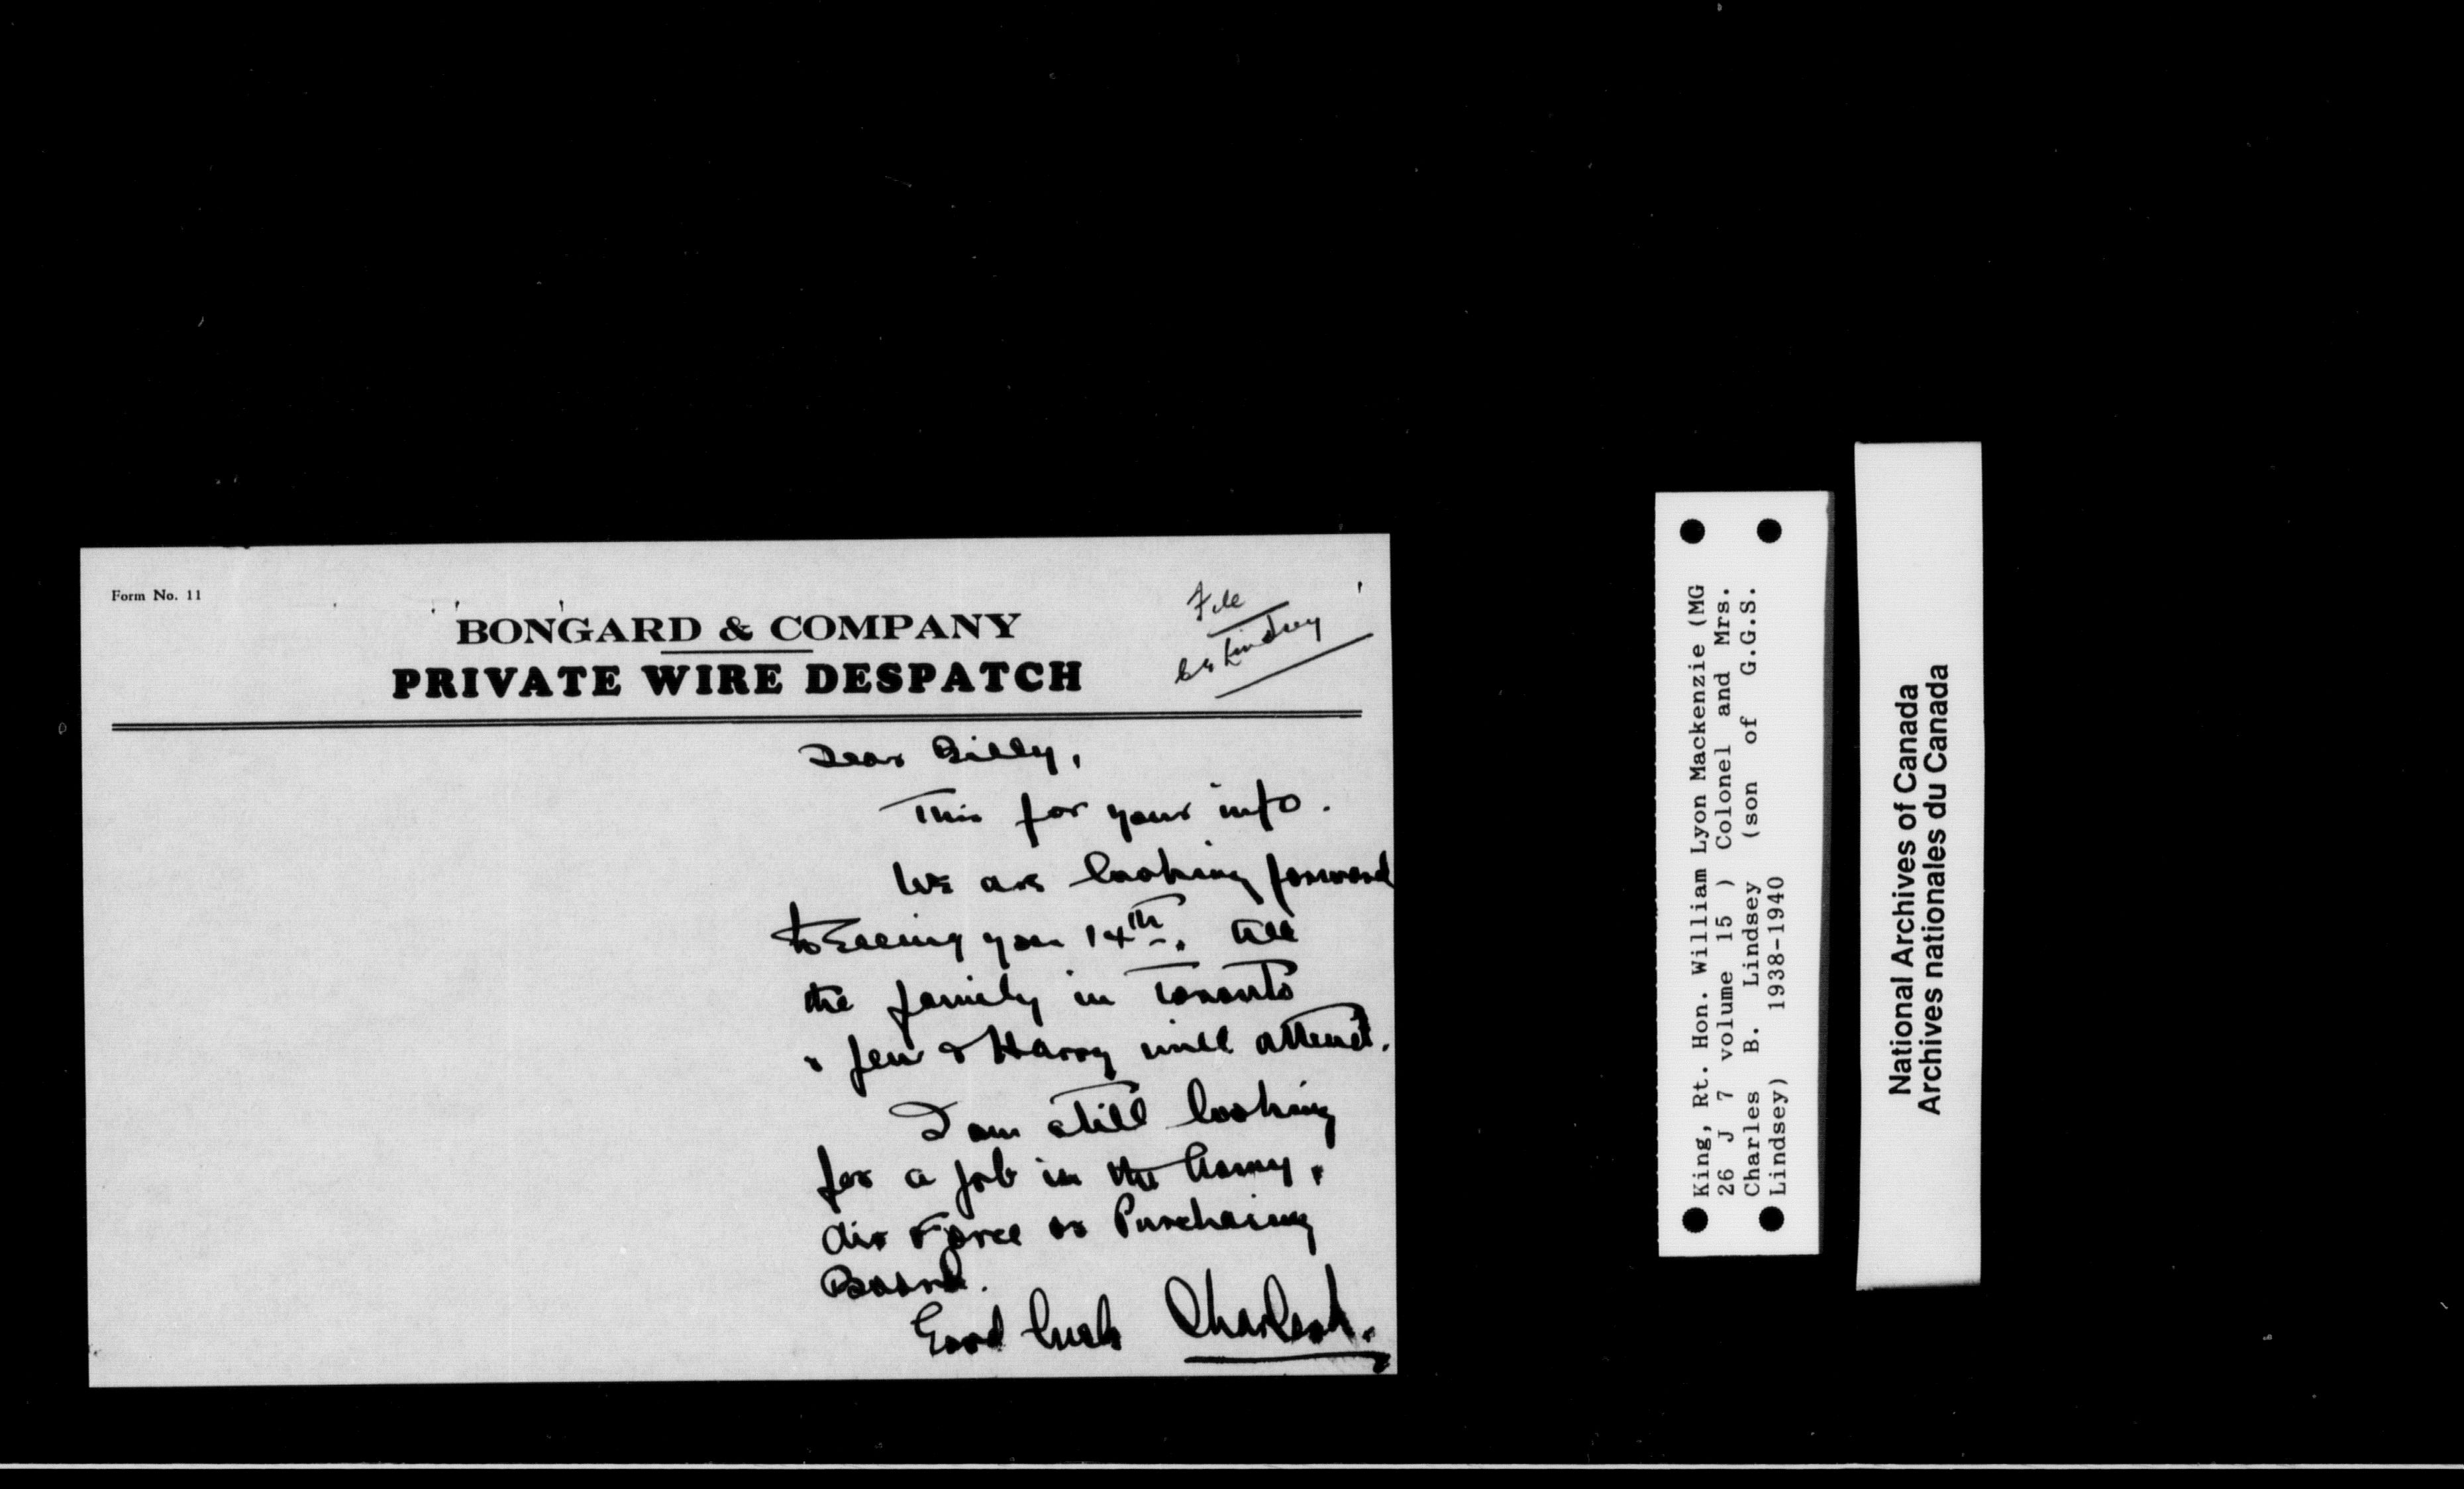 Form No. 11
BONGARD & COMPANY
PRIVATE WIRE DESPATCH
File
Lindsey
Dear Billy,
This for your info.
We are looking forward
to seeing you 14th. All
the family in Toronto
& Jen & Harry will attend.
I am still looking
for a job in the Army,
Air Force or Purchasing
Board.
Good luck Charles
King, Rt. Hon. William Lyon Mackenzie (MG
26 J 7 volume 15 ) Colonel and Mrs.
Charles B. Lindsey (son of G.G.S.
Lindsey) 1938-1940
National Archives of Canada
Archives nationales du Canada